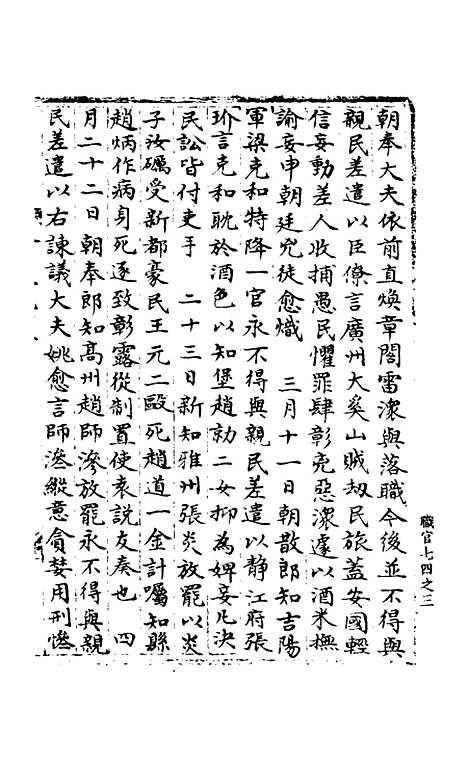 朝奉大夫依前直煥章閣雷潀與落職今後並不得與
親民差遣以臣僚言廣州大奚山賊刼民旅蓋安國輕
信妄動差人收捕愚民懼罪肆彰克惡潀遽以酒米撫
諭妄申朝廷兇徒愈熾　三月十一日朝散郎知吉陽
軍梁克和特降一官永不得與親民差遣以静江府張
玠言克和耽於酒色以知堡趙勍二女抑為婢妾凡決
民訟皆付吏手　二十三日新知雅州張炎放罷以炎
子汝礪受新都豪民王元二毆死趙道一金計囑知縣
趙炳作病身死遂致彰露從制置使袁説友奏也　四
月二十二日朝奉郎知髙州趙師滲放罷永不得與親
民差遣以右諫議大夫姚愈言師滲縱意貪婪用刑慘
職官七四之三